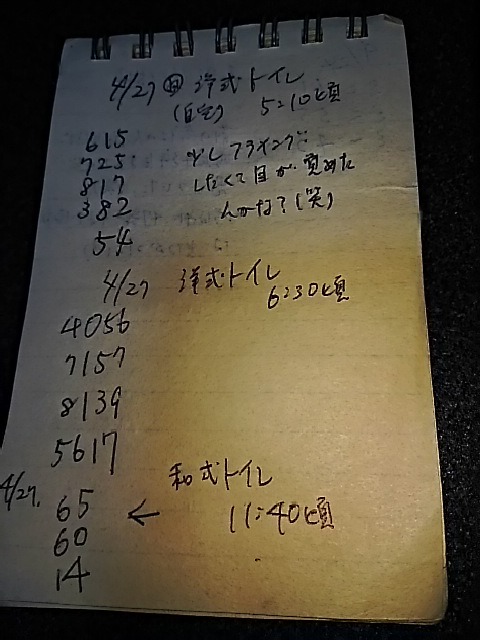 4/27 ㊐ 洋式トイレ
(自宅) 5:10頃
615
725 少しフライング
817 したくて目が覚めた
382 んかな?(笑)
54
4/27 洋式トイレ
6:30頃
4056
7157
8139
5617
4/27. 65 ← 和式トイレ
11:40頃
60
14